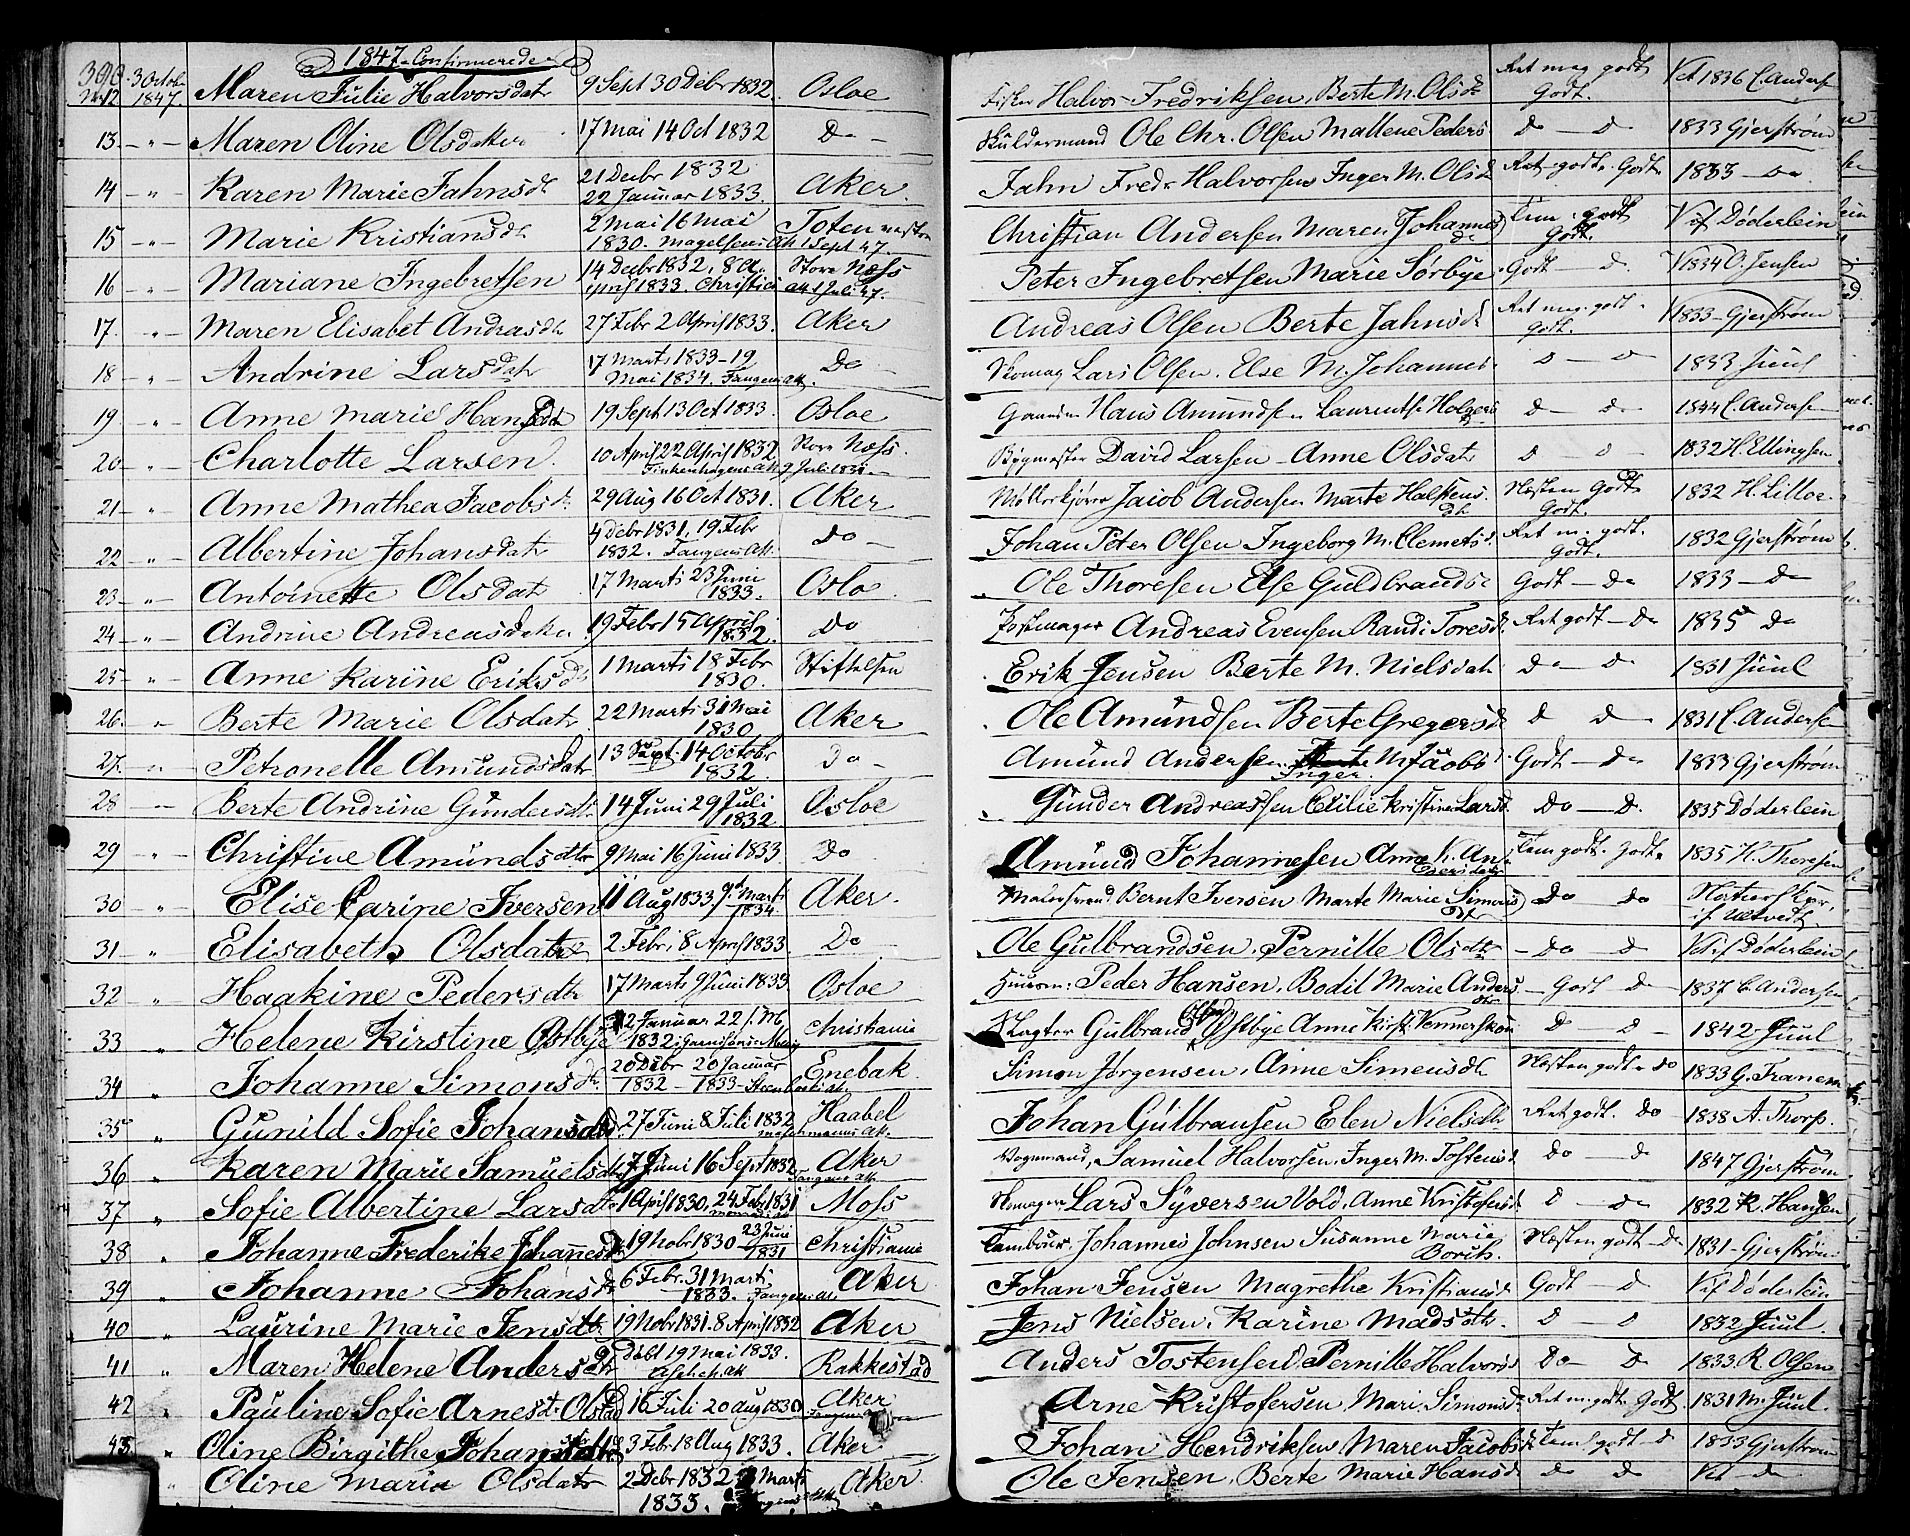 1847 Confirmerede
390. No 12 3 Octobr 1847 Maren Julie Halvorsdatr 9 Sept 30 Debr 1832 Osloe Fisker Halvor Fredriksen, Berte M. Olsd. Ret meg godt Godt. Vct 1836 C. Anders
13 " Maren Oline Olsdatter 17 Mai 14 Oct 1832 Do Kuldermand Ole Chr. Olsen Mallene Peders Do Do 1833 Gjerstrøm
14 " Karen Marie Jahnsdt 21 Decbr 1832 22 Januar 1833. Aker Jahn Fredr Halvorsen Inger M. Olsd Ret godt. Godt 1833 Do
15 " Marie Kristiansdt 2 Mai 16 Mai 1830. Magelsens Att 1 Sept 47. Toten Christian Andersen Maren Johannesd Tem. godt Godt. V. if Døderlein
16 " Mariane Ingebretsen 14 Decbr 1832, 8 April 1833. Christies Att 1 Juli 47. Store Næss Peter Ingebretsen Marie Sørbye Godt Do V 1834 O. Jensen
17. " Maren Elisabet Andrasdtr 27 Febr 2 April 1833. Aker Andreas Olsen Berte Jahnsd Ret meg. godt Godt. V 1833 Gjerstrøm
18 " Andrine Larsdatr 17 Marts 1833-19 Mai 1834. Fangens Att. Do Skomag Lars Olsen. Else M. Johannes Do Do 1833 Juul
19 " Anne Marie Hansdatr 19 Sept 13 Oct 1833. Osloe Hans Amundsen Laurentse Holgers Do Do 1844 C. Andersen
20 " Charlotte Larsen. 10 April 22 April 1832 Finkenhagens Att 9 Juli 183 Store Næss Bygmester David Larsen Anne Olsdatr Do Do 1832 H. Ellingsen
21 " Anne Mathea Jacobsdt. 29 Aug 16 Oct 1831. Aker Møllerkjører Jacob Andersen Marte Halstensdt Næsten Godt Godt. 1832 H. Lilloe
22 " Albertine Johansdatr 4 Debr 1831, 19 Febr 1832. Fangens Att. Do Johan Peter Olsen Ingeborg M. Clemetsd. Ret m. godt. Godt. 1832 Gjerstrøm
23 " Antoinette Olsdatr 17 Marts 23 Juni 1833. Oslo Ole Thoresen Else Guldbrands Godt Do 1833 Do
24 " Andrine Andreasdatr 19 Febr 15 April 1832. Do Postmager Andreas Evensen Randi Toresd. Ret godt Do 1835 Do
25 " Anne Karine Eriksdt 1 Marts 18 Febr 1830. Stiftelsen Erik Jensen Berte M. Nielsdatr Do Do 1831 Juul
26. " Berte Marie Olsdatr 22 Marts 31 Mai 1830 Aker Ole Amundsen Berte Gregersd Do Do 1831 C. Andersen
27. " Petronelle Amundsdatr 13 Sept. 14 Octobr 1832. Do Amund Andersen Inger M. Jacobs Godt Do 1833 Gjerstrøm
28 " Berte Andrine Gundersdtr 14 Juni 29 Juli 1832. Osloe Gunder Andreassen Cicilie Kristine Larsd. Do Do 1835 Døderlein
29 " Christine Amundsdtr 9 Mai 16 Juni 1833 Do Amund Johannesen Anne K. Andersdatr Tem godt. Godt 1835 H. Thoresen
30 " Elise Carine Iversen 11 Aug 1833 9d Marts 1834 Aker Malersvend Bernt Iversen Marte Marie Simonsdt Do Do
31 " Elisabeth Olsdatr 2 Febr, 8 April 1833. Do Ole Gulbrandsen, Pernille Olsdtr Do Do Vct if Døderlein
32 " Haakine Pedersdtr 17 Marts 9 Juni 1833 Osloe Huusm: Peder Hansen, Bodil Marie Andersdtr Godt Do 1837 C. Andersen
33 " Helene Kirstine Østbye 2 Januar 22 f. M 1832 Garnisons Menig Christiania Slagter Gulbrand Olsen Østbye Anne Kirst. Vennerskøn Do Do 1842 Juul
34 " Johanne Simonsdt. 20 Debr 20 Januar 1832 - 1833 - Steenbocks att Enebak Simon Jørgensen, Anne Simensdt Næsten godt Do 1833 G. Franem
35 " Gunild Sofie Johansdtr 27 Juni 8 Juli 1832 Maschmanns Att. Haabel Johan Gulbransen Elen Nielsdtr Ret godt. Do 1838 A. Thorp.
36 " Karen Marie Samuelsdtr 7 Juni 16 Sept 1832 Fangens Att Aker Vognmand, Samuel Halvorsen, Inger M. Tostensd Do Do 1847 Gjerstrøm
37 " Sofie Albertine Larsdtr 1 April 1830, 24 Febr 1831 Moss Skomager Lars Syversen Vold, Anne Kristofersd Do Do 1832 K. Hansen
38 " Johanne Frederike Johannesd 19 Nobr 1830 23 Juni 1831 Christiania Tambour, Johannes Johnsen Susanne Marie Borch. Næsten godt Do 1831 Gjerstrøm
39 " Johanne Johansd 6 Febr. 31 Marts 1833. Fangens att Aker Johan Jensen Magrethe Kristiansd Godt Do V. if Døderlein
40 " Laurine Marie Jensdtr 19 Nobr 1831. 8 April 1832 Aker Jens Nielsen, Karine Madsdtr Do Do 1832 Juul.
41 " Maren Helene Andersdtr Døbt 19 Mai 1833. Rakkestad Anders Tostensen, Pernille Halvorsd Do Do 1833 R Olsen
42 " Pauline Sofie Arnesdt Olstad 16 Juli 20 Aug 1830 Aker Fangens Arne Kristofersen Mari Simonsd Ret m. godt Godt. 1831 M. Juul.
43 " Oline Birgithe Johansdtr 3 Feb. 18 Aug 1833. Aker Johan Hendriksen, Maren Jacobsd Tem godt Do 1833 Gjerstrøm
" Oline Maria Olsdatr 2 Debr 1832 Marts 1833. Aker Ole Jensen, Berte Marie Hansd Do Do Vct Do